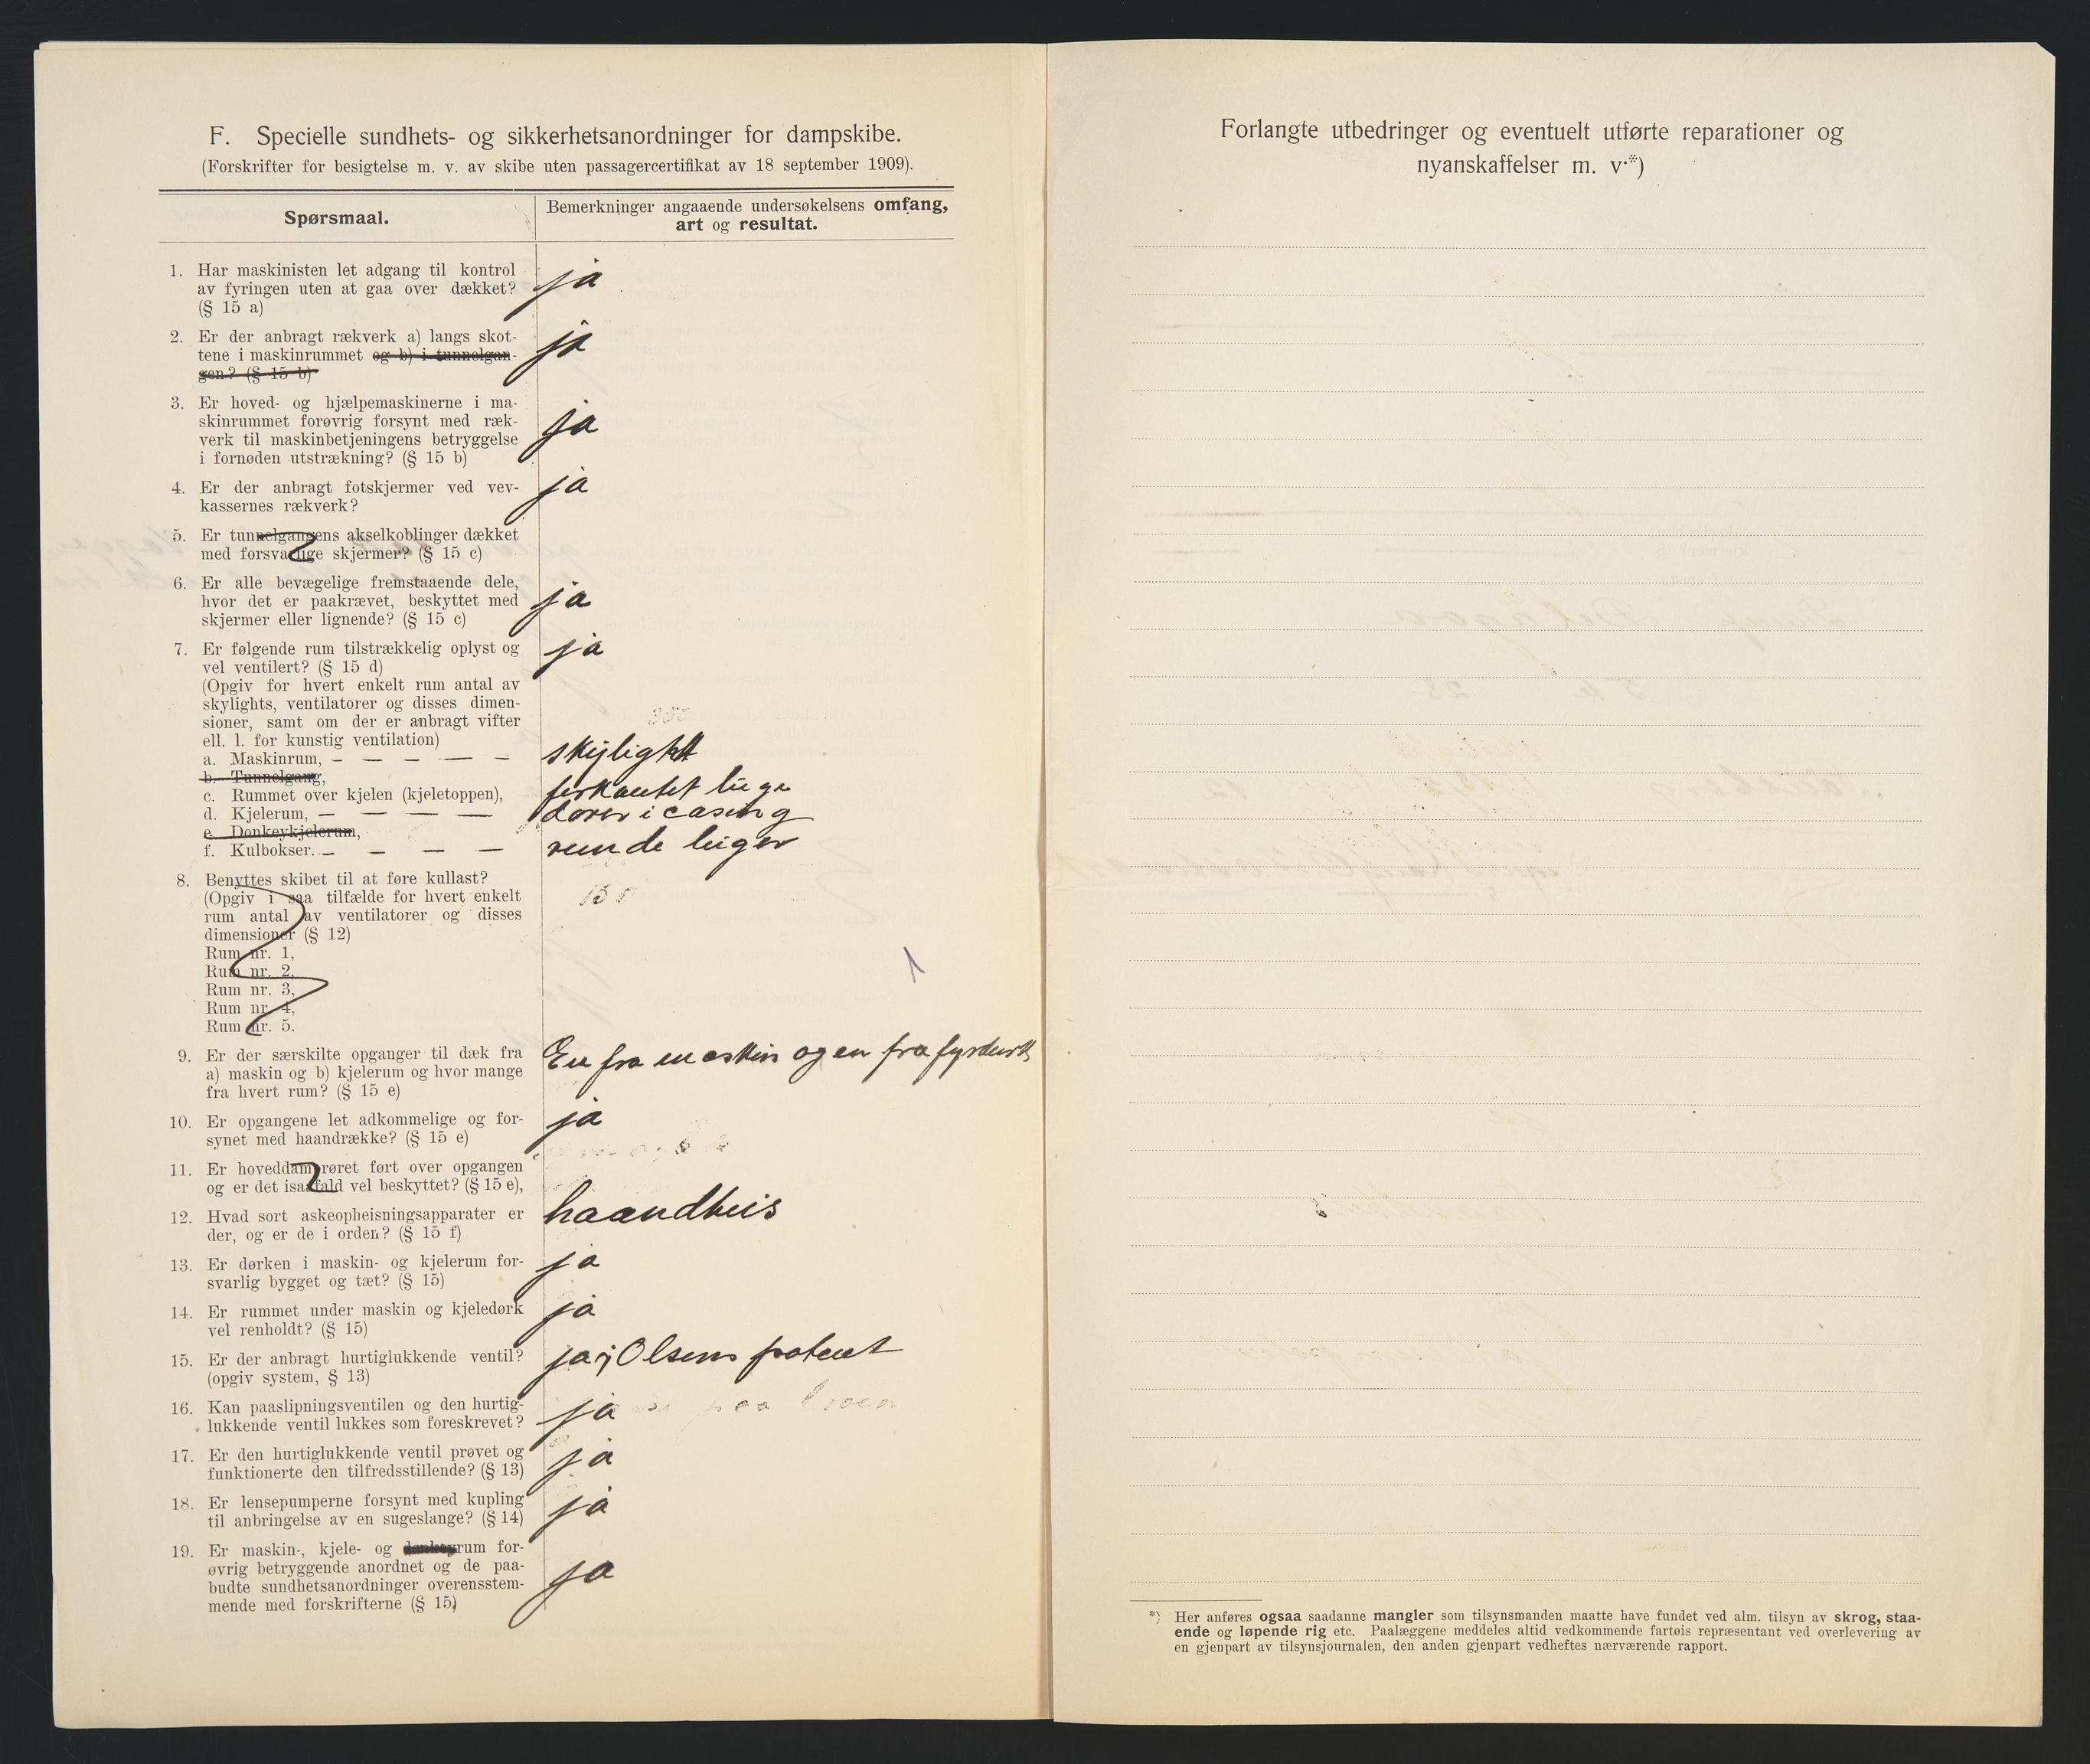 F. Specielle sundhets- og sikkerhetsanordninger for dampskibe.
(Forskrifter for besigtelse m. v. av skibe uten passagercertifikat av 18 september 1909).
Spørsmaal.
Bemerkninger angaaende undersøkelsens omfang,
art og resultat.
1. Har maskinisten let adgang til kontrol
av fyringen uten at gaa over dækket?
(§ 15 a)
ja
2. Er der anbragt rækverk a) langs skot-
tene i maskinrummet og b) i tunnelgan-
gen? (§ 15 b)
ja
3. Er hoved- og hjælpemaskinerne i ma-
skinrummet forøvrig forsynt med ræk-
verk til maskinbetjeningens betryggelse
i fornøden utstrækning? (§ 15 b)
ja
4. Er der anbragt fotskjermer ved vev-
kassernes rækverk?
ja
5. Er tunnelgangens akselkoblinger dækket
med forsvarlige skjermer? (§ 15 c)
6. Er alle bevægelige fremstaaende dele,
hvor det er paakrævet, beskyttet med
skjermer eller lignende? (§ 15 c)
ja
7. Er følgende rum tilstrækkelig oplyst og
vel ventilert? (§ 15 d)
ja
(Opgiv for hvert enkelt rum antal av
skylights, ventilatorer og disses dimen-
sioner, samt om der er anbragt vifter
ell. l. for kunstig ventilation)
a. Maskinrum, — — — — —
skylight
b. Tunnelgang,
c. Rummet over kjelen (kjeletoppen),
firkantet luge
d. Kjelerum, — — — —
dører i casing
e. Donkeykjelerum,
f. Kulbokser. — — — —
runde luger
8. Benyttes skibet til at føre kullast?
(Opgiv i saa tilfælde for hvert enkelt
rum antal av ventilatorer og disses
dimensioner (§ 12)
Rum nr. 1,
Rum nr. 2,
Rum nr. 3,
Rum nr. 4,
Rum nr. 5.
9. Er der særskilte opganger til dæk fra
a) maskin og b) kjelerum og hvor mange
fra hvert rum? (§ 15 e)
En fra maskin og en fra fyrdørk
10. Er opgangene let adkommelige og for-
synet med haandrække? (§ 15 e)
ja
11. Er hoveddamprøret ført over opgangen
og er det isaafald vel beskyttet? (§ 15 e),
12. Hvad sort askeopheisningsapparater er
der, og er de i orden? (§ 15 f)
haandheis
13. Er dørken i maskin- og kjelerum for-
svarlig bygget og tæt? (§ 15)
ja
14. Er rummet under maskin og kjeledørk
vel renholdt? (§ 15)
ja
15. Er der anbragt hurtiglukkende ventil?
(opgiv system, § 13)
ja; Olsens patent
16. Kan paaslipningsventilen og den hurtig-
lukkende ventil lukkes som foreskrevet?
ja
17. Er den hurtiglukkende ventil prøvet og
funktionerte den tilfredsstillende? (§ 13)
ja
18. Er lensepumperne forsynt med kupling
til anbringelse av en sugeslange? (§ 14)
ja
19. Er maskin-, kjele- og donkeyrum for-
øvrig betryggende anordnet og de paa-
budte sundhetsanordninger overensstem-
mende med forskrifterne (§ 15)
ja
Forlangte utbedringer og eventuelt utførte reparationer og
nyanskaffelser m. v.*)
*) Her anføres ogsaa saadanne mangler som tilsynsmanden maatte have fundet ved alm. tilsyn av skrog, staa-
ende og løpende rig etc. Paalæggene meddeles altid vedkommende fartøis repræsentant ved overlevering av
en gjenpart av tilsynsjournalen, den anden gjenpart vedheftes nærværende rapport.